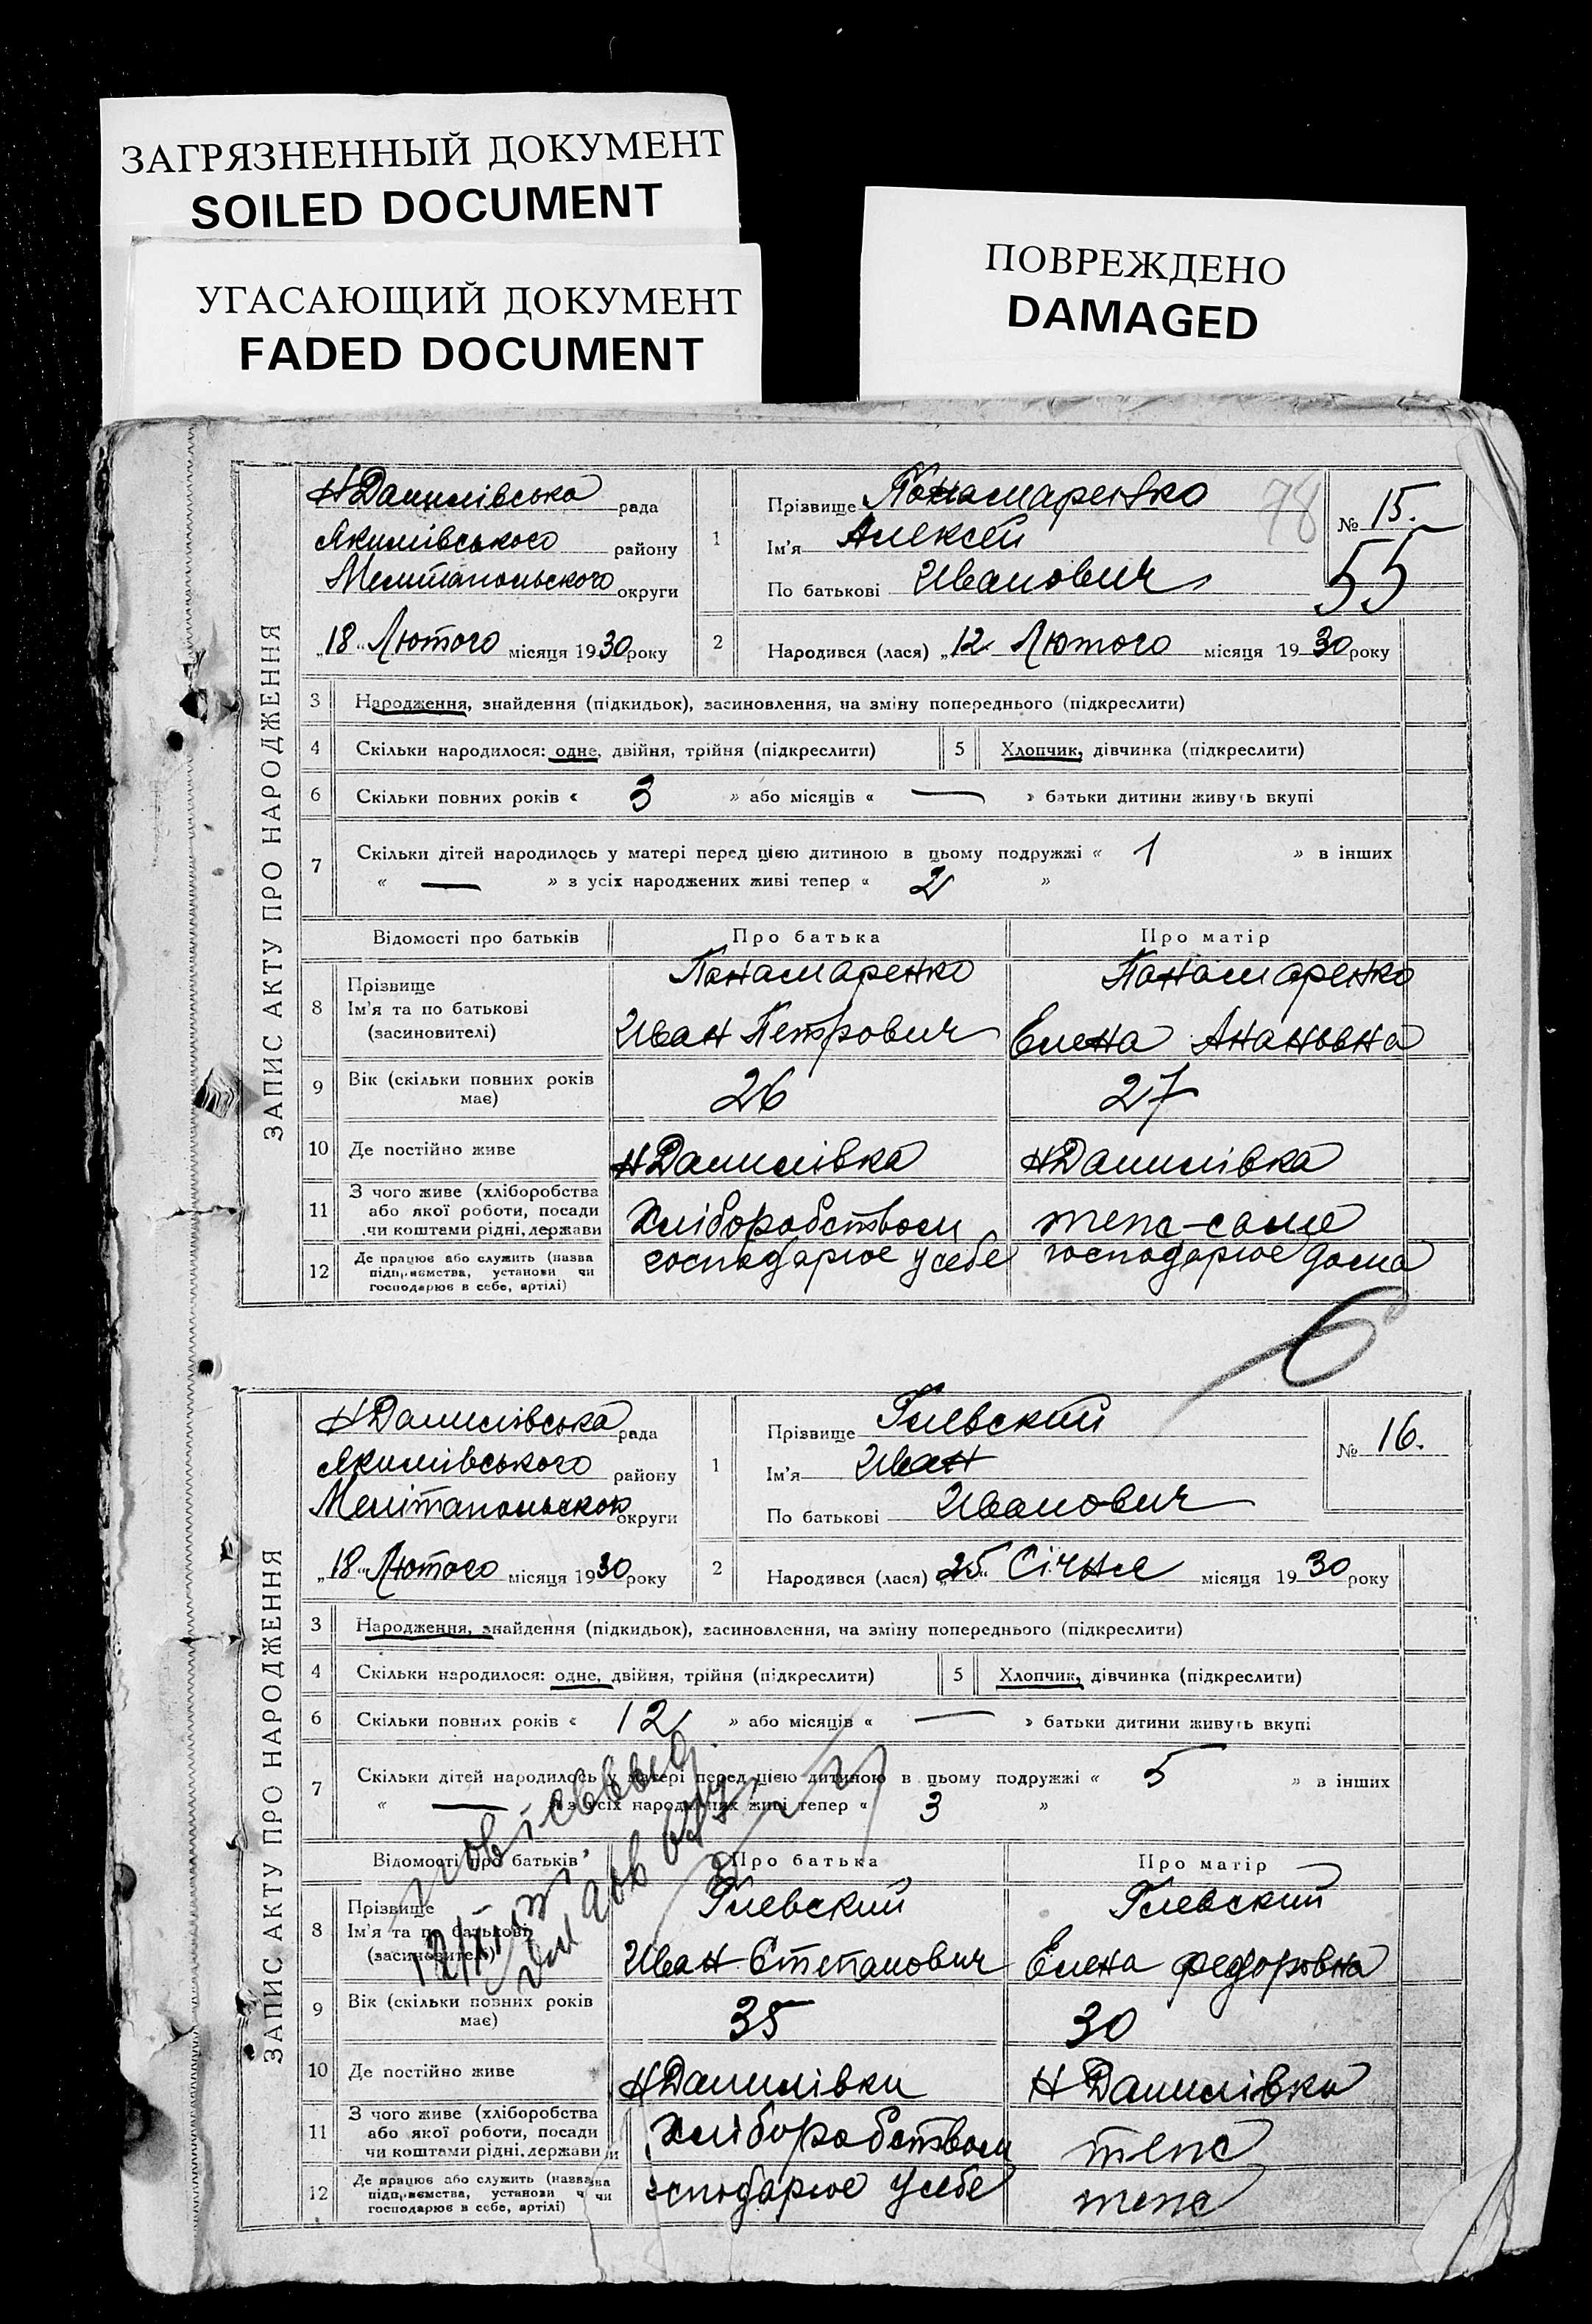 ЗАГРЯЗНЕННЫЙ ДОКУМЕНТ
SOILED DOCUMENT
УГАСАЮЩИЙ ДОКУМЕНТ
FADED DOCUMENT
ПОВРЕЖДЕНО
DAMAGED
ЗАПИС АКТУ ПРО НАРОДЖЕННЯ
Н Данилівська рада
Якимівського району
Мелітапольского округи
„18“ Лютого місяця 1930 року
1 Прізвище Понамаренко
Ім'я Алексей
По батькові Иванович
78
№ 15.
55
2 Народився (лася) „12“ Лютого місяця 1930 року
3 Народження, знайдення (підкидьок), засиновлення, на зміну попереднього (підкреслити)
4 Скільки народилося: одне, двійня, трійня (підкреслити) 5 Хлопчик, дівчинка (підкреслити)
6 Скільки повних років « 3 » або місяців « — » батьки дитини живуть вкупі
7 Скільки дітей народилось у матері перед цією дитиною в цьому подружжі « 1 » в інших
« — » з усіх народжених живі тепер « 2 »
Відомості про батьків Про батька Про матір
8 Прізвище Понамаренко Понамаренко
Ім'я та по батькові Иван Петрович Елена Ананьвна
(засиновителі)
9 Вік (скільки повних років має) 26 27
10 Де постійно живе Н Данилівка Н Данилівка
11 З чого живе (хліборобства або якої роботи, посади чи коштами рідні, держави Хліборобством теж-саме
12 Де працює або служить (назва підприємства, установи чи господарює в себе, артілі) господарює у себе господарює дома
6
ЗАПИС АКТУ ПРО НАРОДЖЕННЯ
Н Данилівська рада
Якимівського району
Мелітапольског округи
„18“ Лютого місяця 1930 року
1 Прізвище Гиевский
Ім'я Иван
По батькові Иванович
№ 16.
2 Народився (лася) „25“ Січня місяця 1930 року
3 Народження, знайдення (підкидьок), засиновлення, на зміну попереднього (підкреслити)
4 Скільки народилося: одне, двійня, трійня (підкреслити) 5 Хлопчик, дівчинка (підкреслити)
6 Скільки повних років « 12 » або місяців « — » батьки дитини живуть вкупі
7 Скільки дітей народилось у матері перед цією дитиною в цьому подружжі « 5 » в інших
« — » з усіх народжених живі тепер « 3 »
Відомості про батьків Про батька Про матір
8 Прізвище Гиевский Гиевский
Ім'я та по батькові Иван Степанович Елена Федоровна
(засиновителі)
9 Вік (скільки повних років має) 35 30
10 Де постійно живе Н Данилівки Н Данилівка
11 З чого живе (хліборобства або якої роботи, посади чи коштами рідні, держави Хліборобством теж
12 Де працює або служить (назва підприємства, установи чи господарює в себе, артілі) господарює у себе теж